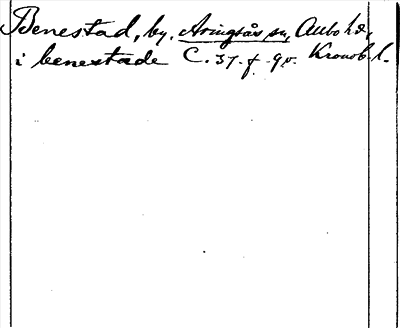 Benestad, by, Aringsås sn, Allbo hd,
i benestade C. 37. f. 9 v. Kronob. l.